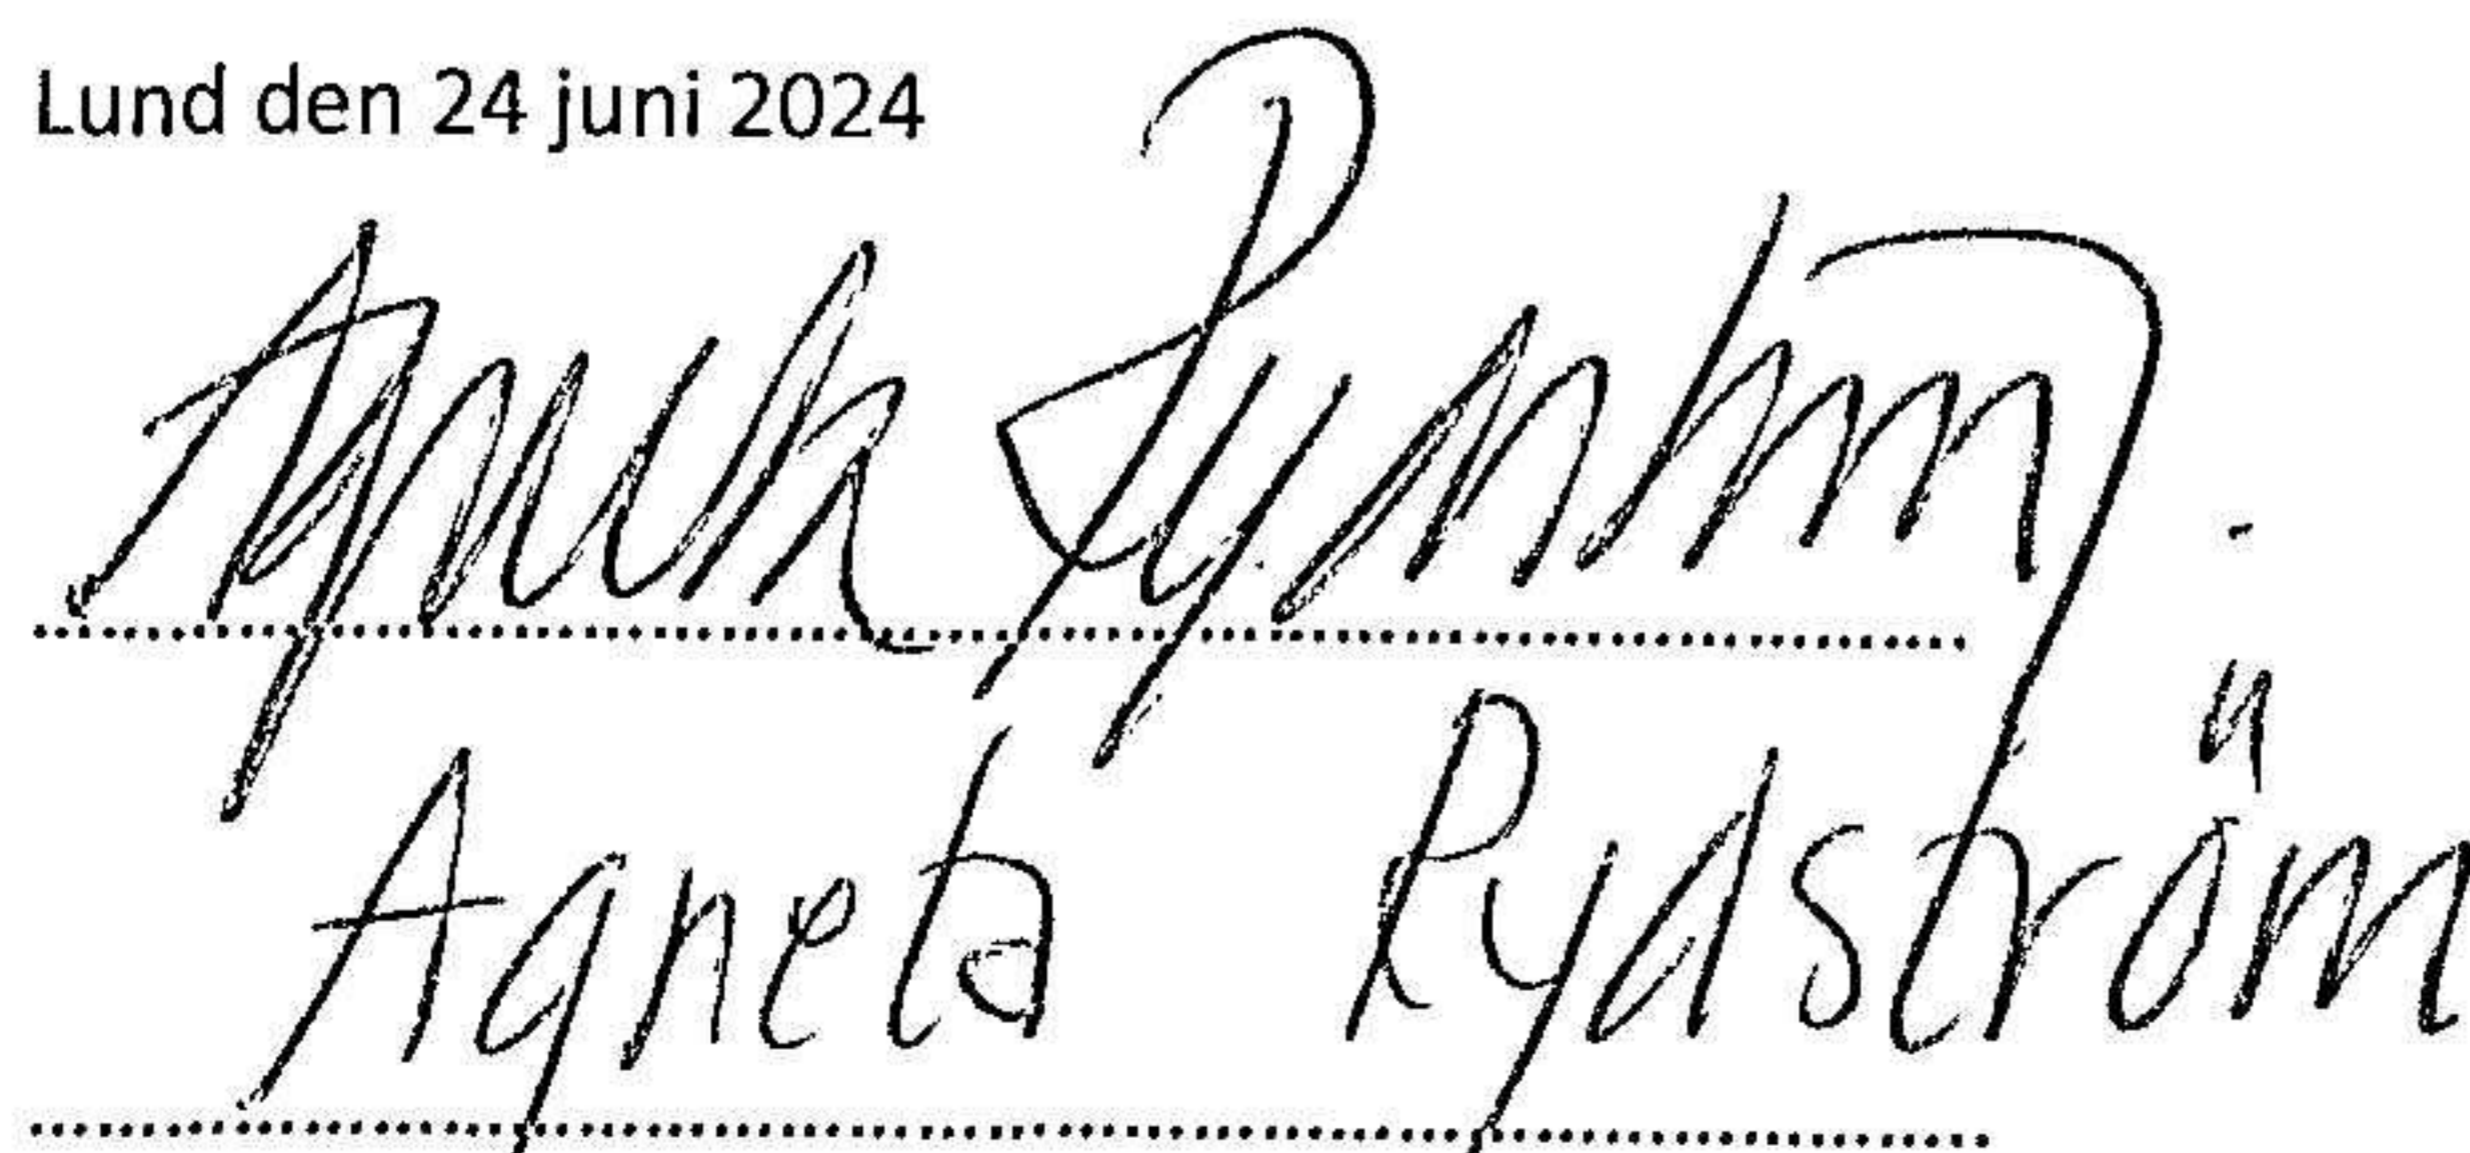 Lund den 24 juni 2024
Agneta Rydström
Agneta Rydström